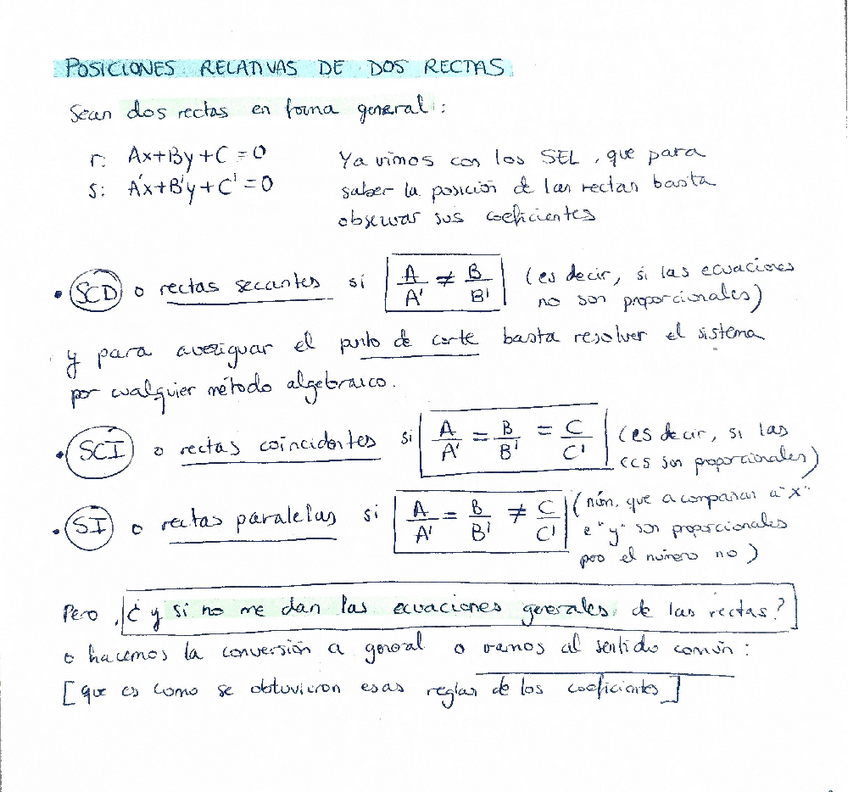 POSICIONES RELATIVAS DE DOS RECTAS
Sean dos rectas en forma general:
r: Ax+By+C=0
s: A'x+B'y+C'=0
Ya vimos con los SEL, que para
saber la posición de las rectas basta
observar sus coeficientes
• SCD o rectas secantes si A/A' ≠ B/B' (es decir, si las ecuaciones
no son proporcionales)
y para averiguar el punto de corte basta resolver el sistema
por cualquier método algebraico.
• SCI o rectas coincidentes si A/A' = B/B' = C/C' (es decir, si las
ecs son proporcionales)
• SI o rectas paralelas si A/A' = B/B' ≠ C/C' (núm. que acompañan a "x"
e "y" son proporcionales
pero el número no)
Pero, ¿y si no me dan las ecuaciones generales de las rectas?
o hacemos la conversión a general o vamos al sentido común:
[que es como se obtuvieron esas reglas de los coeficientes]